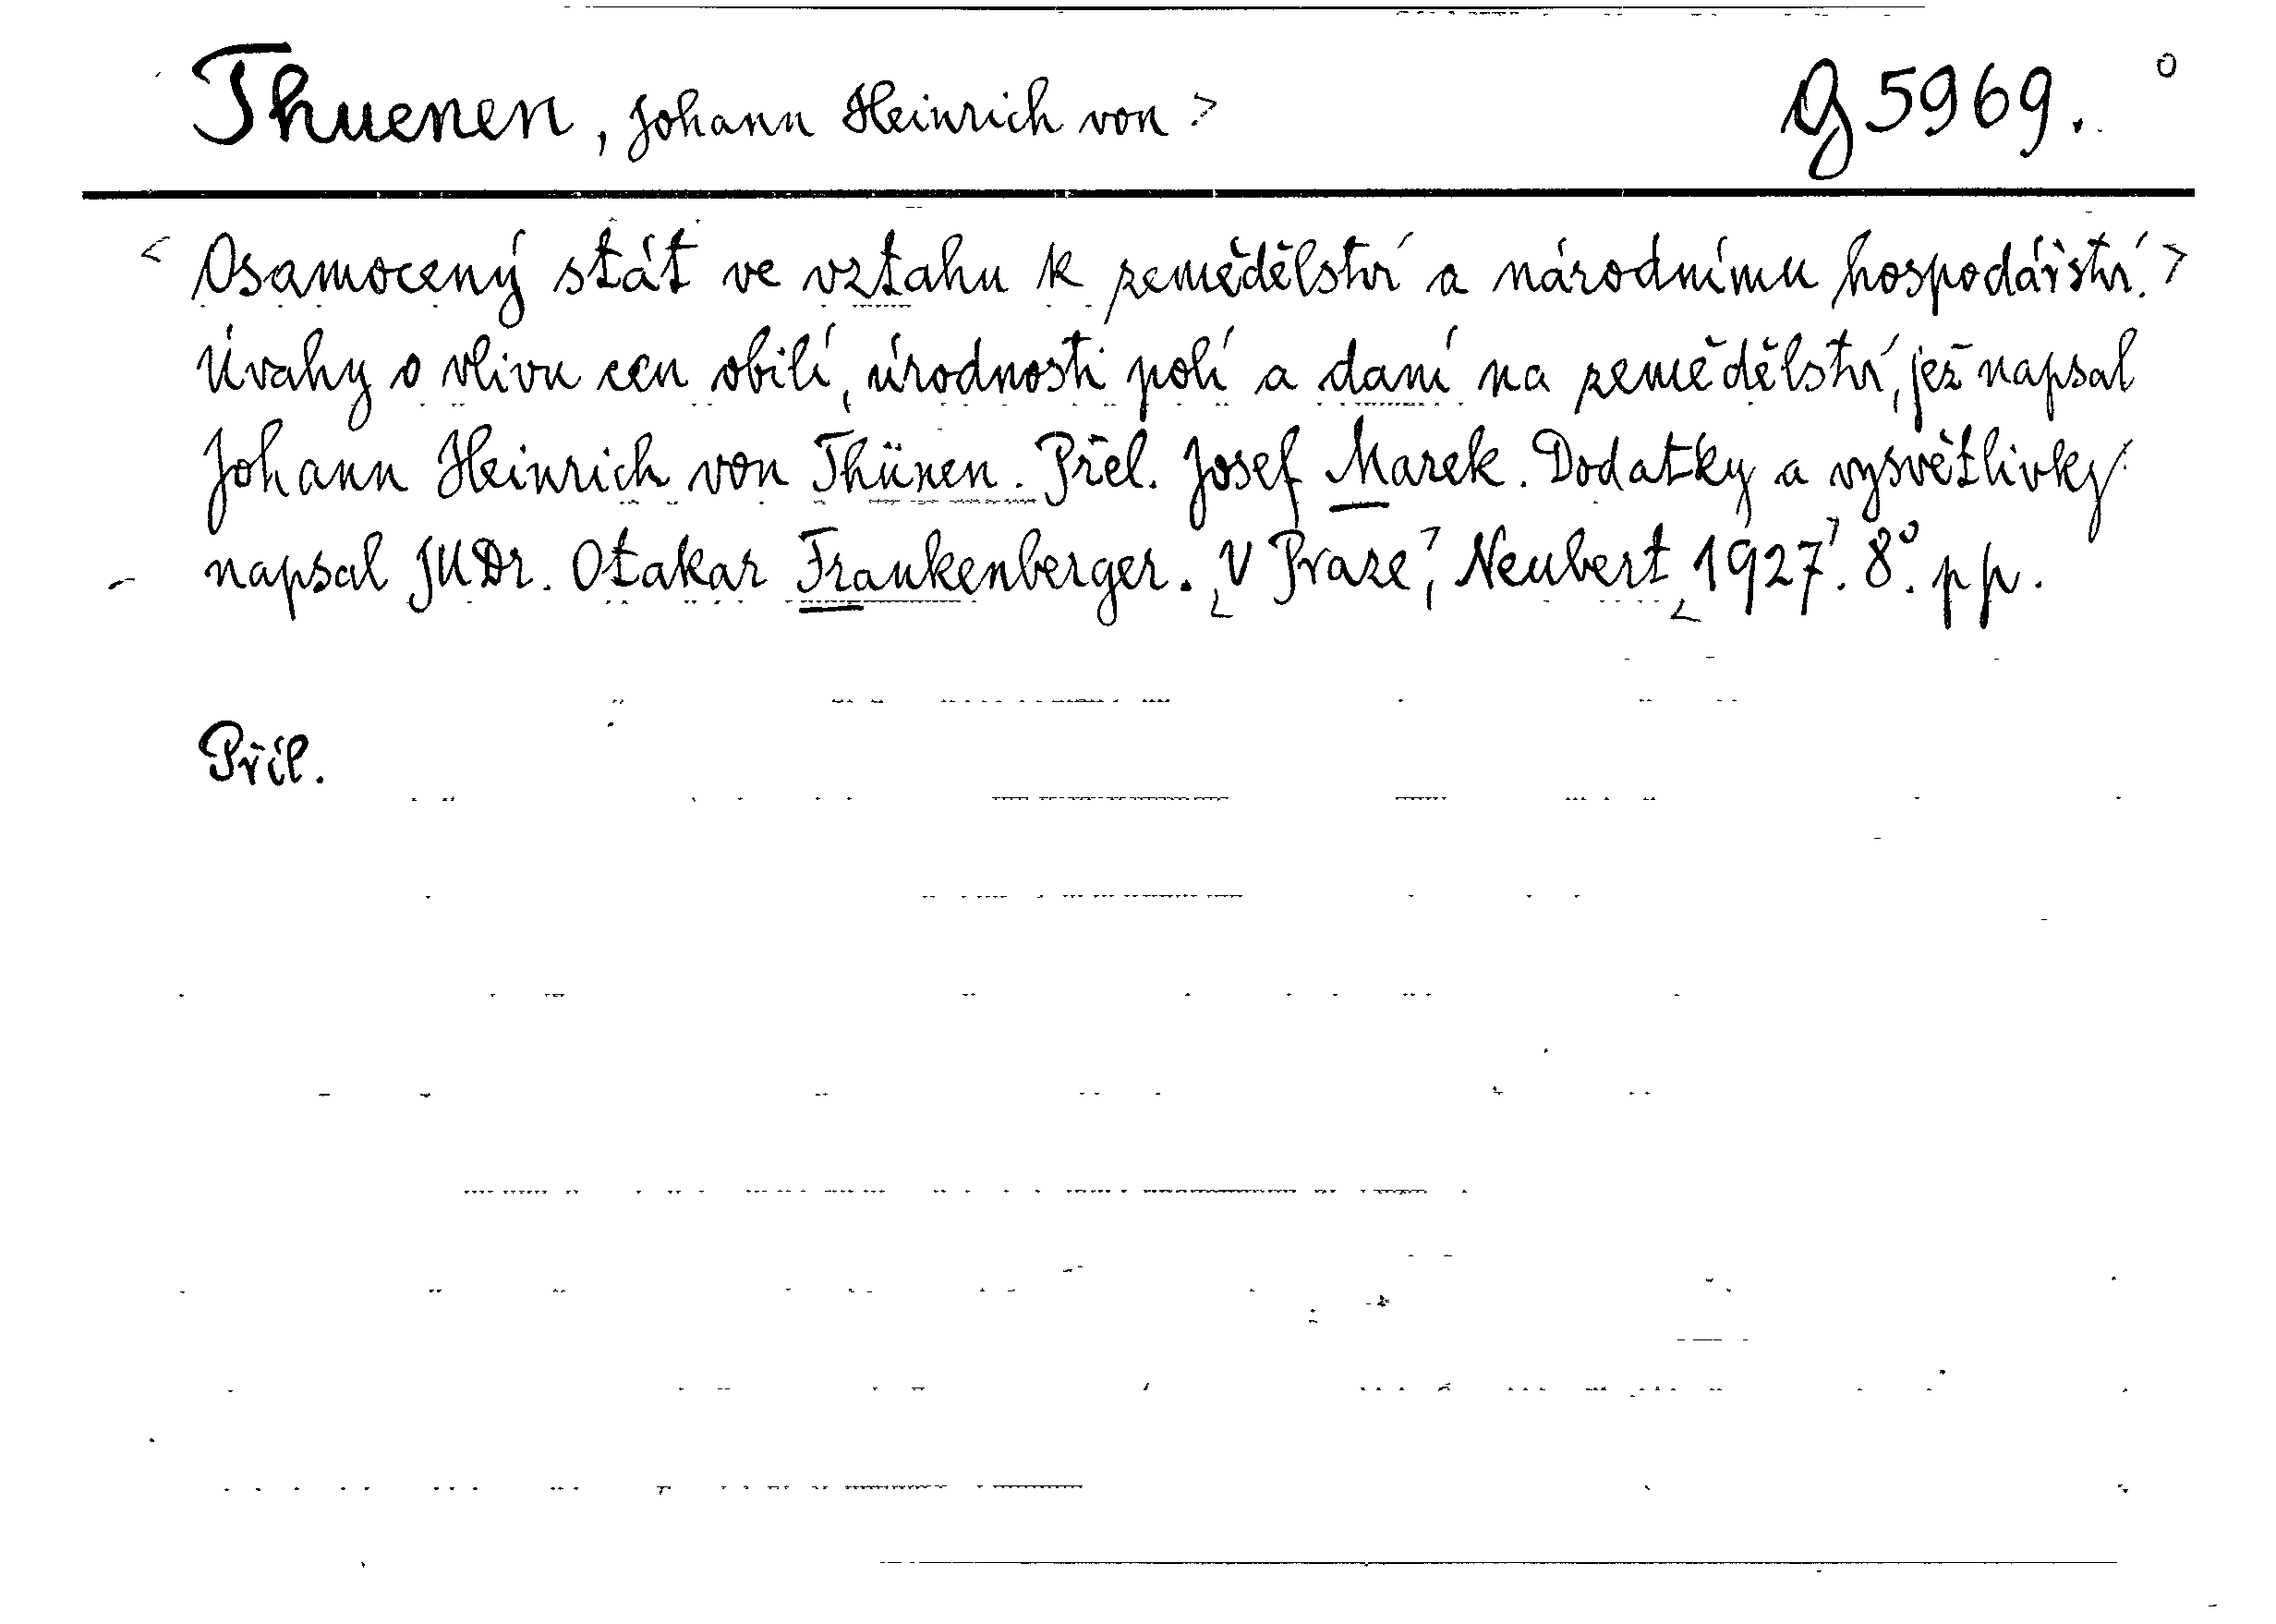 Thuenen, Johann Heinrich von > g 5969. o
< Osamocený stát ve vztahu k zemědělství a národnímu hospodářství. >
Úvahy o vlivu cen obilí, úrodnosti polí a daní na zemědělství, jež napsal
Johann Heinrich von Thünen. Přel. Josef Marek. Dodatky a vysvětlivky
napsal JUDr. Otakar Frankenberger. <V Praze>, Neubert <1927>. 8°. pp.
Příl.